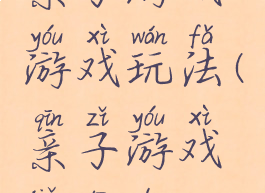 yóu xì wán fǎ
游戏玩法(
qīn zǐ yóu xì
亲子游戏